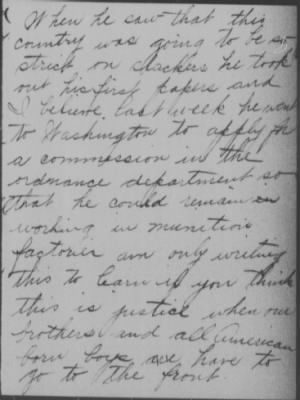 When he saw that this
country was going to be so
strict on slackers he took
out his first papers and
I believe last week he went
to Washington to apply for
a commission in the
ordnance department so
that he could remain in
working in munition
factories am only writing
this to learn if you think
this is justice when our
brothers and all American
born boys have to
go to the front.